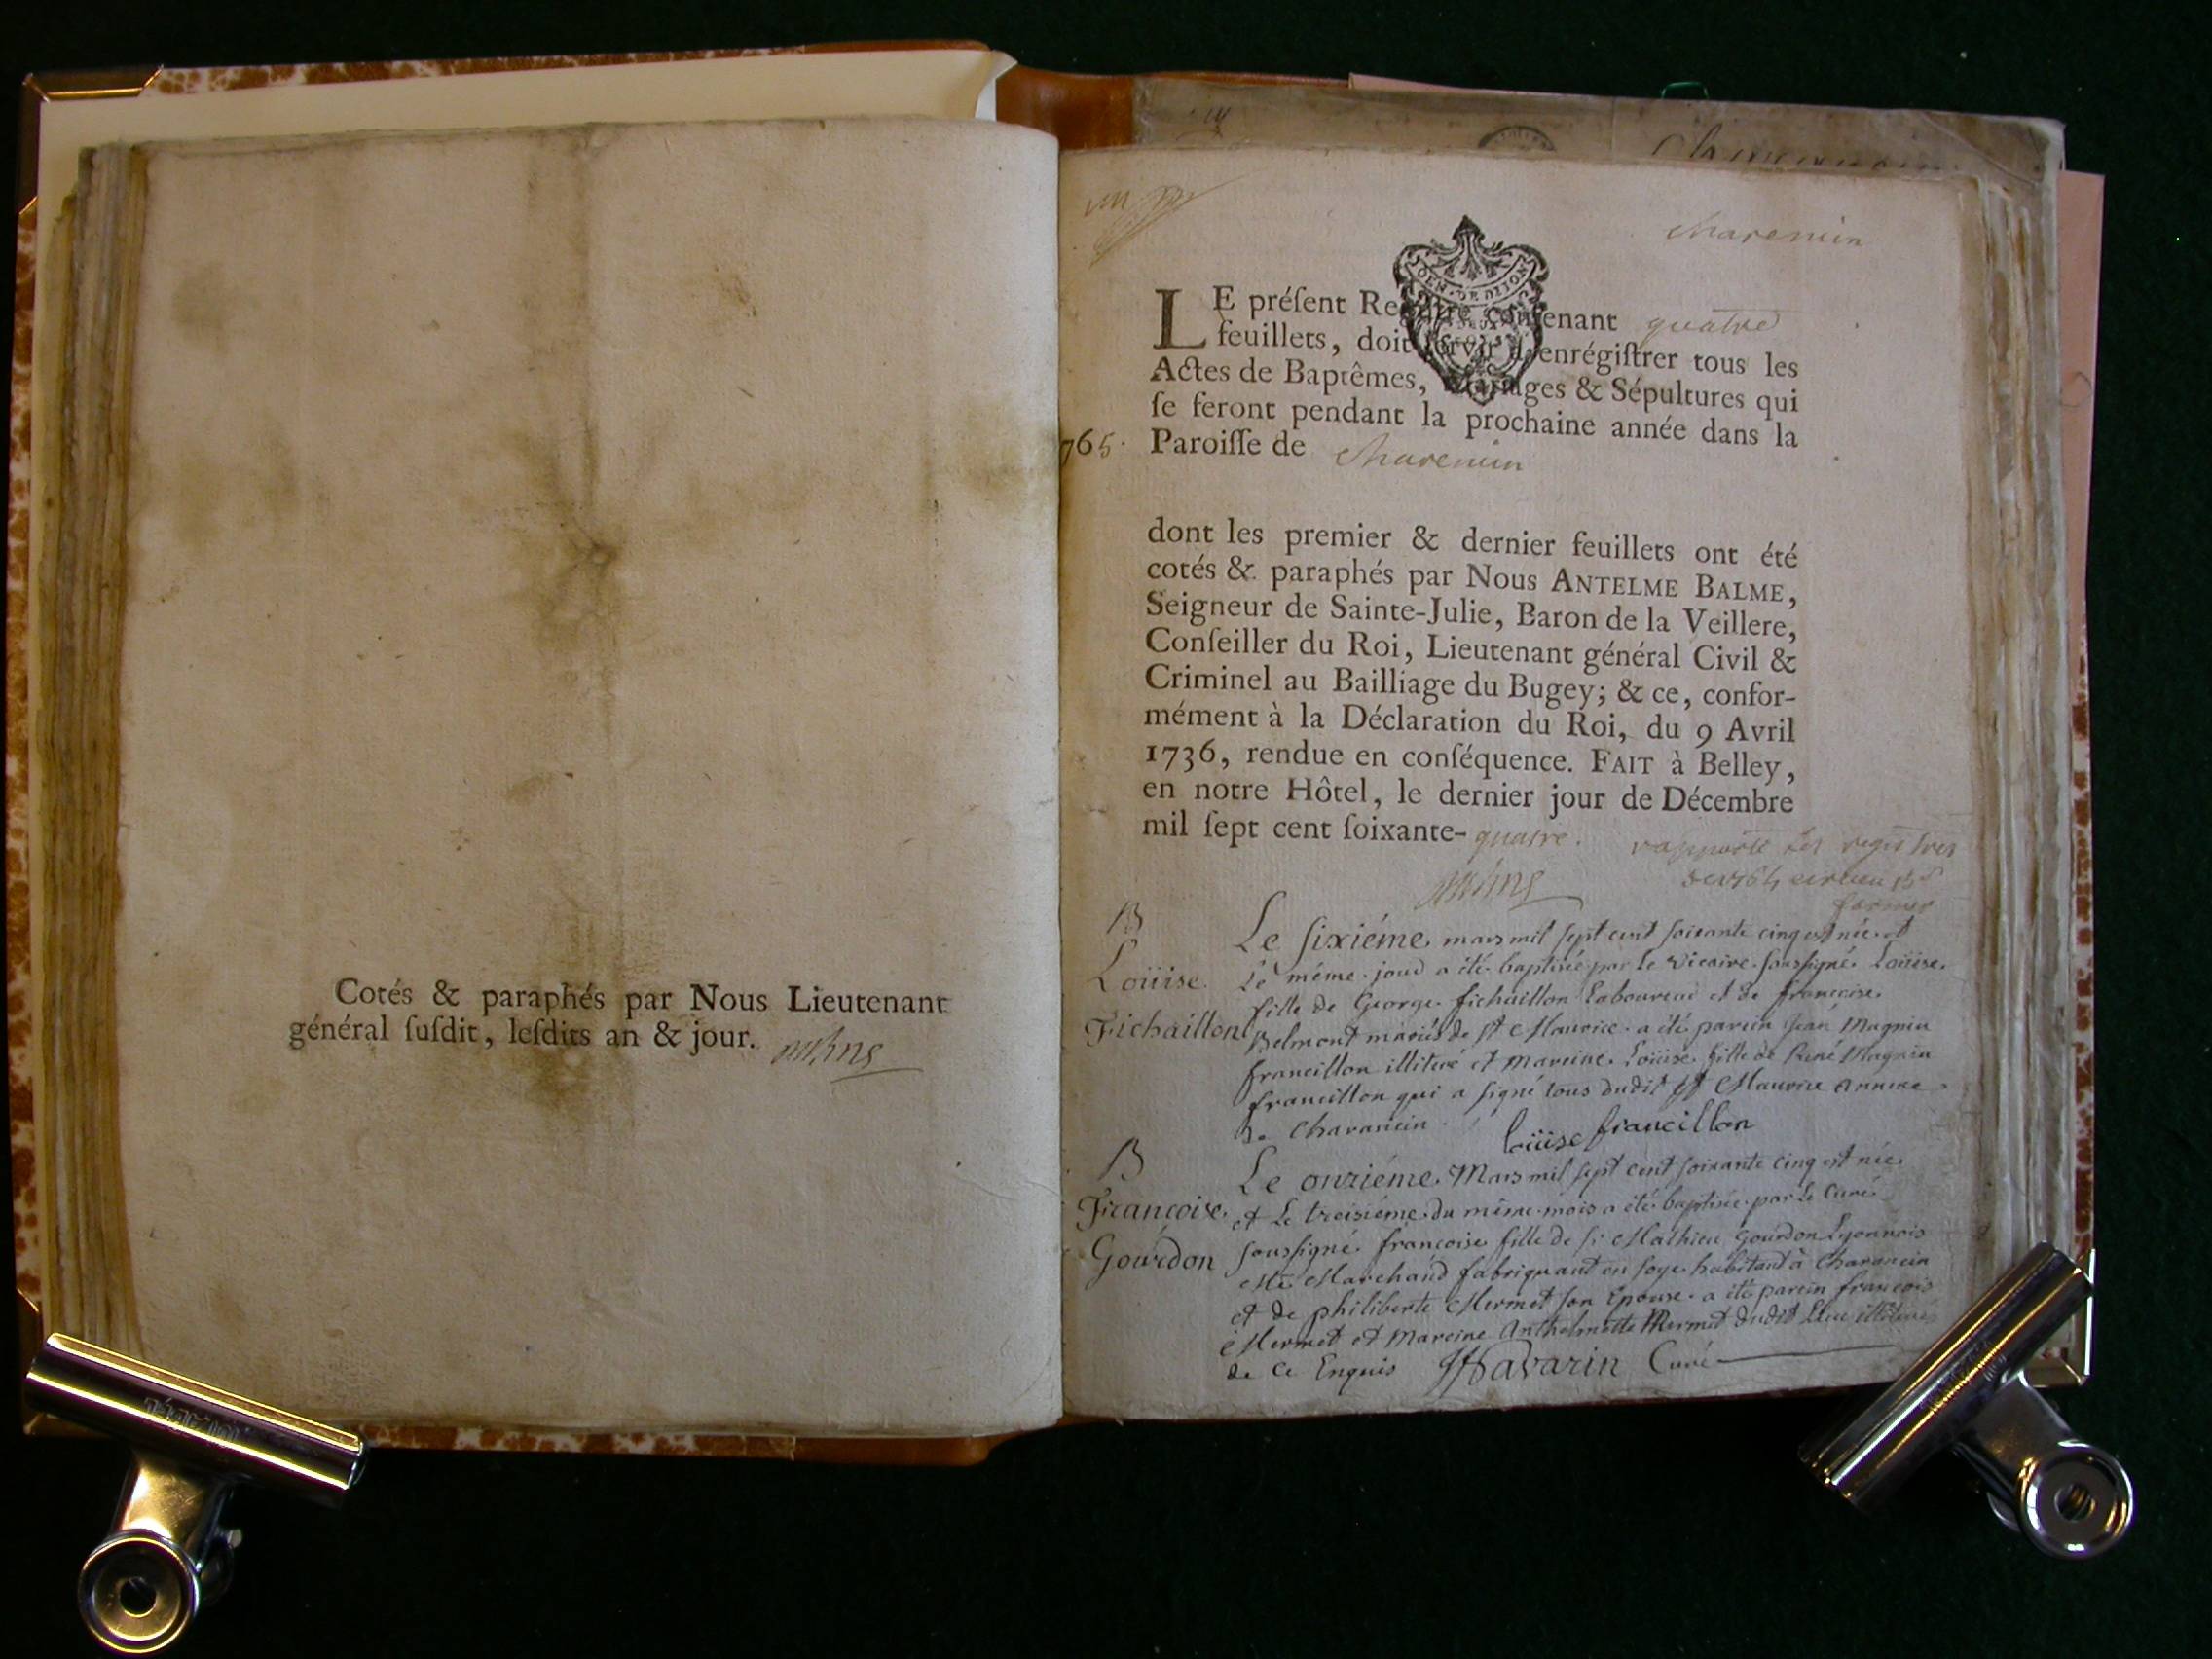 Cotés & paraphés par Nous Lieutenant
général suſdit, leſdits an & jour.
Charencin
GEN. DE DIJON
LE préſent Regiſtre contenant quatre
feuillets, doit ſervir à enrégiſtrer tous les
Actes de Baptêmes, Mariages & Sépultures qui
ſe feront pendant la prochaine année dans la
765. Paroiſſe de Charencin
dont les premier & dernier feuillets ont été
cotés & paraphés par Nous ANTELME BALME,
Seigneur de Sainte-Julie, Baron de la Veillere,
Conſeiller du Roi, Lieutenant général Civil &
Criminel au Bailliage du Bugey; & ce, confor-
mément à la Déclaration du Roi, du 9 Avril
1736, rendue en conſéquence. FAIT à Belley,
en notre Hôtel, le dernier jour de Décembre
mil ſept cent ſoixante-quatre.
rapporté les registres
B
Loüise
Fichaillon
Le sixiéme mars mil sept cent soixante cinq est née et
Le même jour a été baptisée par Le Vicaire soussigné Loüise
fille de George fichaillon Laboureur et de francoise
Belmont mariés de St Maurice a été parein Jean Magnin
francillon illiteré et mareine Loüise fille de René Magnin
francillon qui a signé tous dudit St Maurice annexe
de Charancin
loüise francillon
B
Francoise
Gourdon
Le onziéme Mars mil sept cent soixante cinq est née
et Le treisiéme du même mois a été baptisée par Le Curé
soussigné francoise fille de Sr Mathieu Gourdon Lyonnois
Me Marchand fabriquant en soye habitant à Charancin
et de philiberte Mermet son Epouse a été parein francois
Mermet et mareine Anthelmette Mermet dudit Lieu illiterés
de ce Enquis Savarin Curé